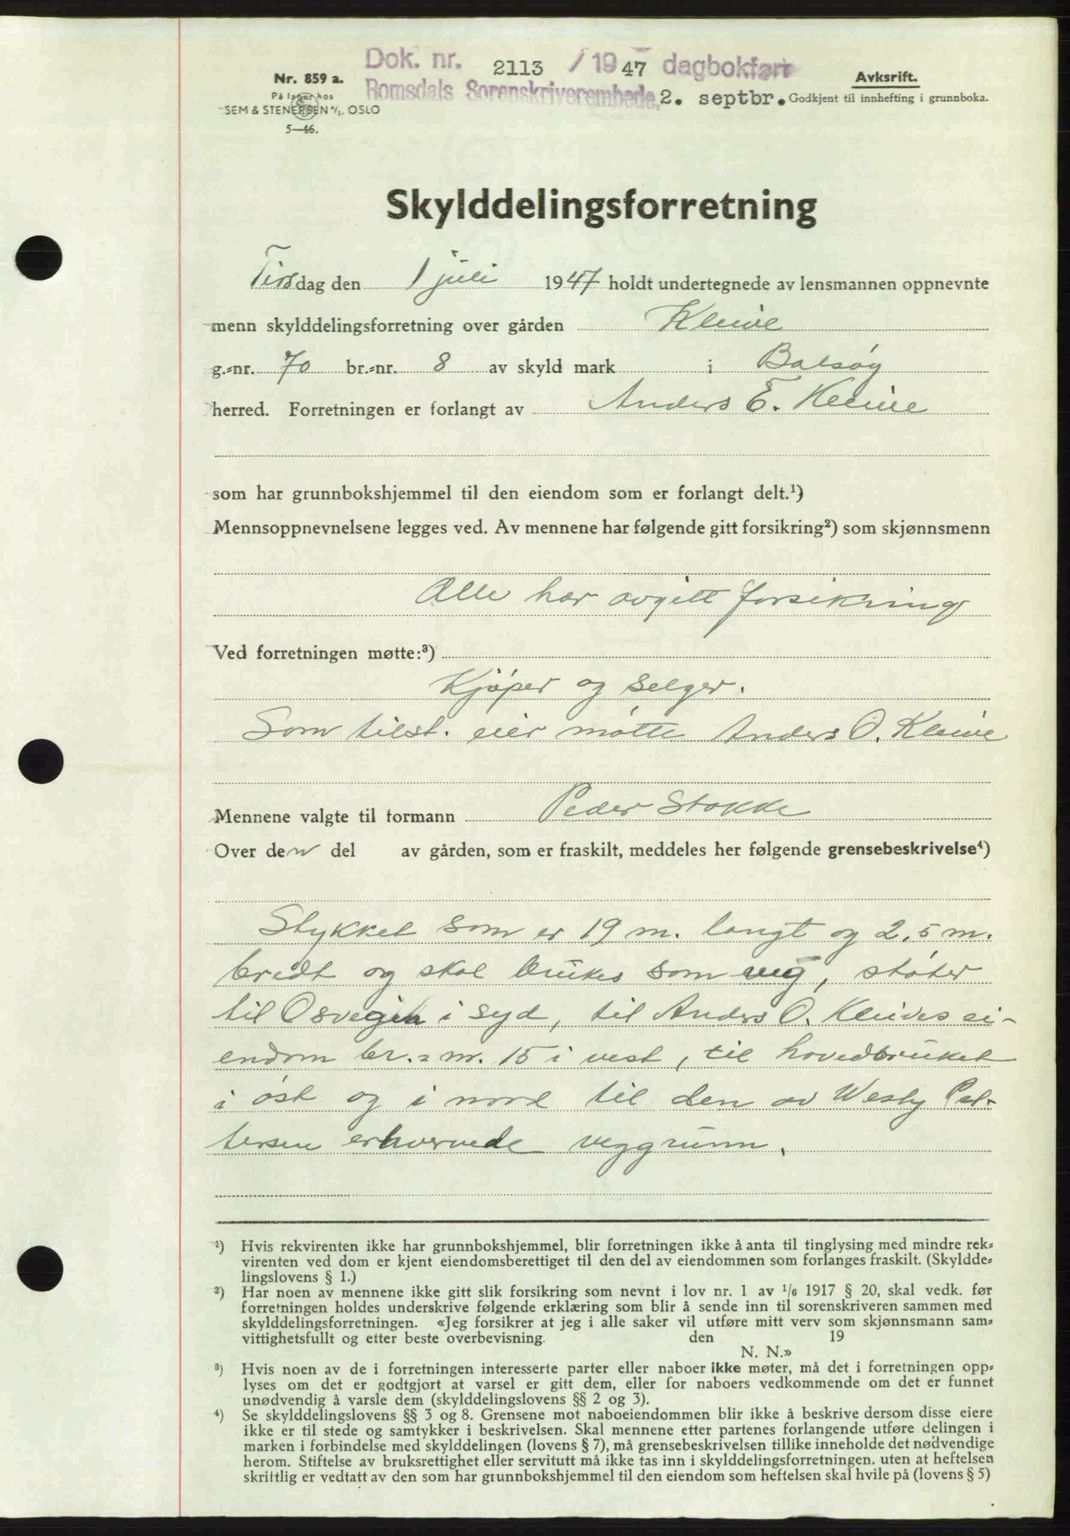 Dok. nr. 2113 / 1947 dagbokført
Romsdals Sorenskriverembede, 2. septbr.
Nr. 859 a.
På lager hos
SEM & STENERSEN A/S, OSLO
5—46.
Avskrift.
Godkjent til innhefting i grunnboka.
Skylddelingsforretning
Tirsdag den 1 juli 1947 holdt undertegnede av lensmannen oppnevnte
menn skylddelingsforretning over gården Kleive
g.-nr. 70 br.-nr. 8 av skyld mark i Bolsøy
herred. Forretningen er forlangt av Anders E. Kleive
som har grunnbokshjemmel til den eiendom som er forlangt delt.¹)
Mennsoppnevnelsene legges ved. Av mennene har følgende gitt forsikring²) som skjønnsmenn
Alle har avgitt forsikring
Ved forretningen møtte:³)
Kjøper og selger.
Som tilst. eier møtte Anders O. Kleive
Mennene valgte til formann Peder Stokke
Over den del av gården, som er fraskilt, meddeles her følgende grensebeskrivelse⁴)
Stykket som er 19 m. langt og 2,5 m.
bredt og skal brukes som veg, støter
til Osvegen i syd, til Anders O. Kleives ei-
endom br.=nr. 15 i vest, til hovedbruket
i øst og i nord til den av Wesly Pet-
tersen erhvervede veggrunn.
¹) Hvis rekvirenten ikke har grunnbokshjemmel, blir forretningen ikke å anta til tinglysing med mindre rek-
virenten ved dom er kjent eiendomsberettiget til den del av eiendommen som forlanges fraskilt. (Skyldde-
lingslovens § 1.)
²) Har noen av mennene ikke gitt slik forsikring som nevnt i lov nr. 1 av 1/6 1917 § 20, skal vedk. før
forretningen holdes underskrive følgende erklæring som blir å sende inn til sorenskriveren sammen med
skylddelingsforretningen. «Jeg forsikrer at jeg i alle saker vil utføre mitt verv som skjønnsmann sam-
vittighetsfullt og etter beste overbevisning. den 19
N. N.»
³) Hvis noen av de i forretningen interesserte parter eller naboer ikke møter, må det i forretningen opp-
lyses om det er godtgjort at varsel er gitt dem, eller for naboers vedkommende om det er funnet
unødvendig å varsle dem (skylddelingslovens §§ 2 og 3).
⁴) Se skylddelingslovens §§ 3 og 8. Grensene mot naboeiendommen blir ikke å beskrive dersom disse eiere
ikke er til stede og samtykker i beskrivelsen. Skal mennene etter partenes forlangende utføre delingen i
marken i forbindelse med skylddelingen (lovens § 7), må grensebeskrivelsen tillike inneholde det nødvendige
herom. Stiftelse av bruksrettighet eller servitutt må ikke tas inn i skylddelingsforretningen. uten at heftelsen
skriftlig er vedtatt av den som har grunnbokshjemmel til den eiendom som heftelsen skal hvile på (lovens § 5)